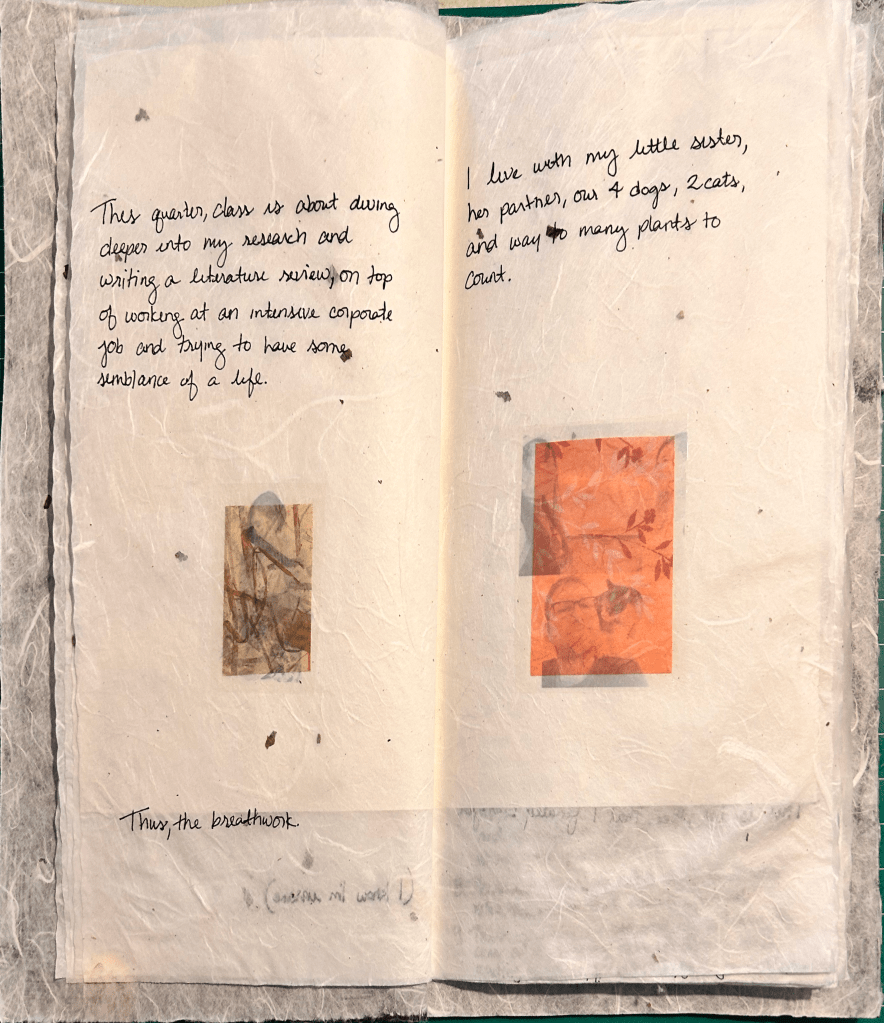 This quarter, class is about diving
deeper into my research and
writing a literature review, on top
of working at an intensive corporate
job and trying to have some
semblance of a life.
Thus, the breathwork.
(I know I'm unwise).
I live with my little sister,
her partner, our 4 dogs, 2 cats,
and way to many plants to
count.